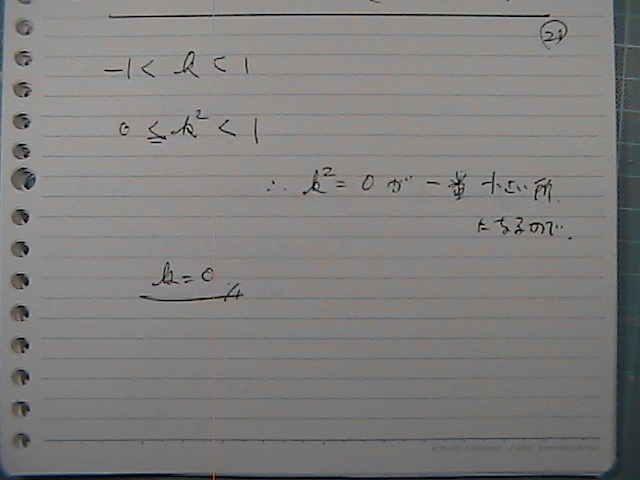 ㉑
-1 < k < 1
0 ≤ k² < 1
∴ k² = 0 が 一番 小さい 所
になるので.
k = 0